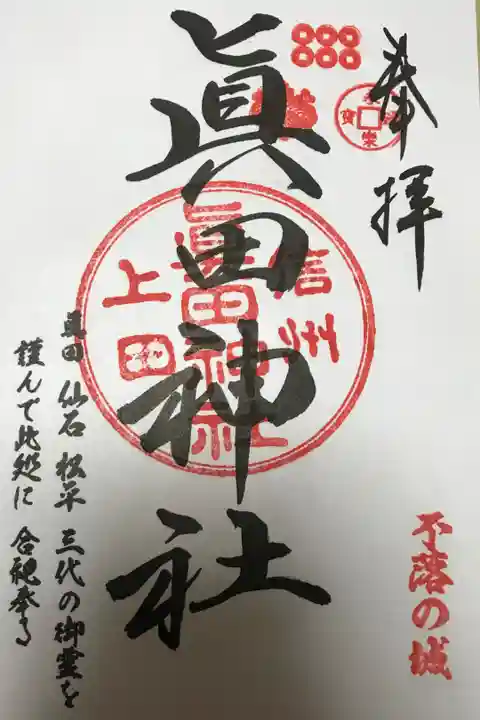 奉拝
不落の城
眞田神社
信州
眞田神社
上田
眞田 仙石 松平 三代の御霊を
謹んで此処に 合祀奉る